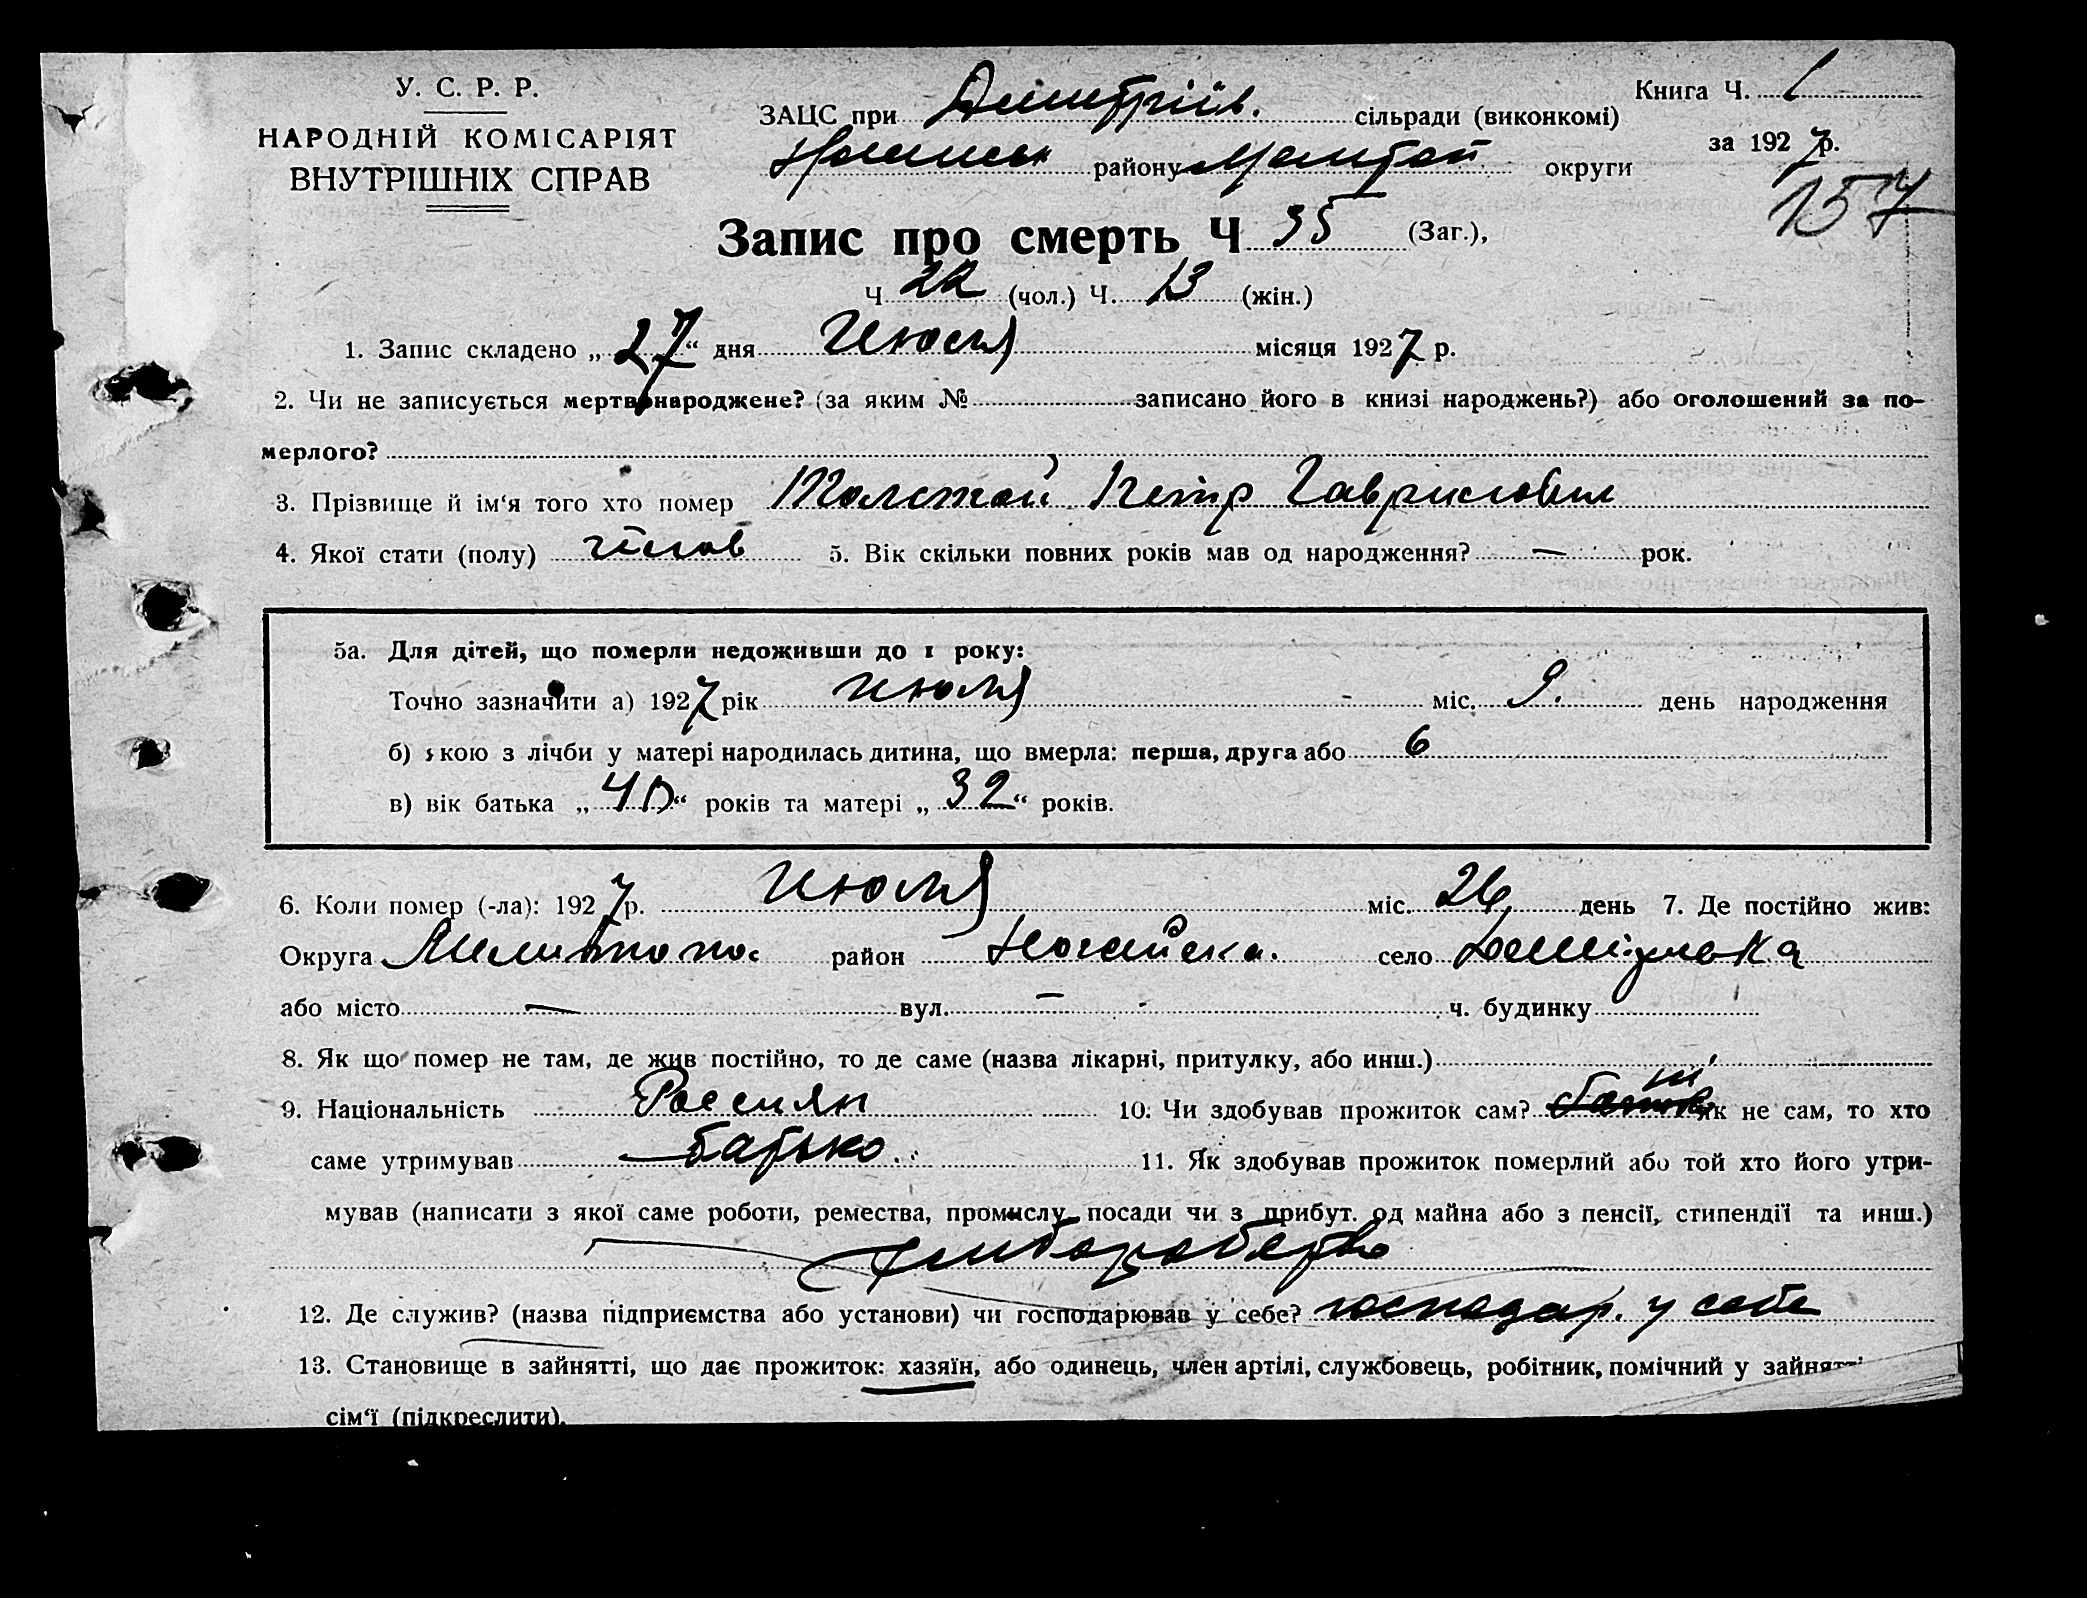 У. С. Р. Р.
НАРОДНІЙ КОМІСАРІЯТ
ВНУТРІШНІХ СПРАВ
ЗАЦС при Димитріїв. сільради (виконкомі)
району округи
Книга Ч.
за 1927 р.
157
Запис про смерть Ч 35 (Заг.),
Ч 22 (чол.) Ч. 13 (жін.)
1. Запис складено „27“ дня Июля місяця 1927 р.
2. Чи не записується мертвонароджене? (за яким № записано його в книзі народжень?) або оголошений за по-
мерлого?
3. Прізвище й ім‘я того хто помер Толстой Петр Гаврилович
4. Якої стати (полу) чолов 5. Вік скільки повних років мав од народження? — рок.
5а. Для дітей, що померли недоживши до 1 року:
Точно зазначити а) 1927 рік июля міс. 9. день народження
б) якою з лічби у матері народилась дитина, що вмерла: перша, друга або 6
в) вік батька „40“ років та матері „32“ років.
6. Коли помер (-ла): 1927 р. июля міс. 26 день 7. Де постійно жив:
Округа район Ногайска. село
або місто — вул. — ч. будинку
8. Як що помер не там, де жив постійно, то де саме (назва лікарні, притулку, або инш.)
9. Національність Россиян 10. Чи здобував прожиток сам? ні як не сам, то хто
саме утримував батько. 11. Як здобував прожиток померлий або той хто його утри-
мував (написати з якої саме роботи, ремества, промислу, посади чи з прибут. од майна або з пенсії, стипендії та инш.)
12. Де служив? (назва підприємства або установи) чи господарював у себе? господар. у себе
13. Становище в зайнятті, що дає прожиток: хазяїн, або одинець, член артілі, службовець, робітник, помічний у зайнятті
сім‘ї (підкреслити).